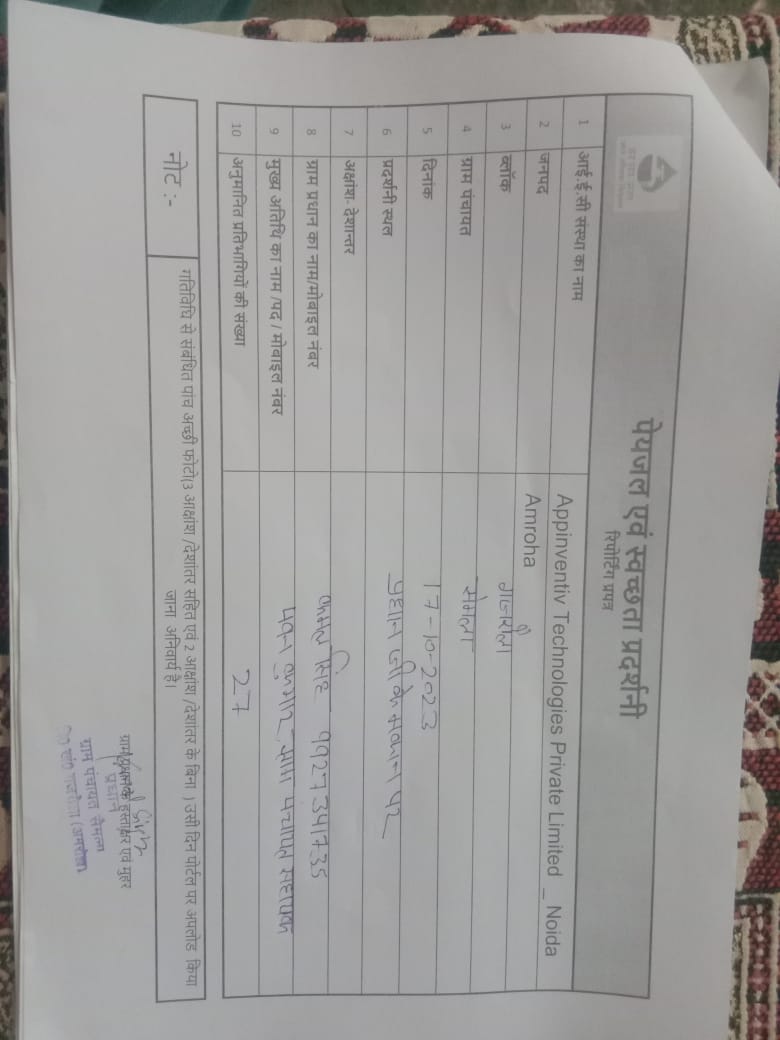 पेयजल एवं स्वच्छता प्रदर्शनी
रिपोर्टिंग प्रपत्र
1 आई.ई.सी संस्था का नाम Appinventiv Technologies Private Limited _ Noida
2 जनपद Amroha
3 ब्लॉक गजरौला
4 ग्राम पंचायत सैमला
5 दिनांक 17-10-2023
6 प्रदर्शनी स्थल प्रधान जी के मकान पर
7 अक्षांश- देशान्तर
8 ग्राम प्रधान का नाम/मोबाइल नंबर कमल सिंह 9927341735
9 मुख्य अतिथि का नाम /पद / मोबाइल नंबर पवन कुमार पंचायत सहायक
10 अनुमानित प्रतिभागियों की संख्या 27
नोट :- गतिविधि से संबंधित पांच अच्छी फोटो(3 आक्षांश /देशांतर सहित एवं 2 आक्षांश /देशांतर के बिना ) उसी दिन पोर्टल पर अपलोड किया
जाना अनिवार्य है।
ग्राम प्रधान के हस्ताक्षर एवं मुहर
प्रधान
ग्राम पंचायत सैमला
गजरौला (अमरोहा)